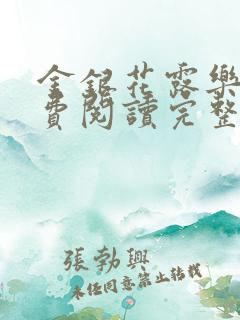 金銀花露樂
費閱讀完整
張勃興
未經同意禁止轉載